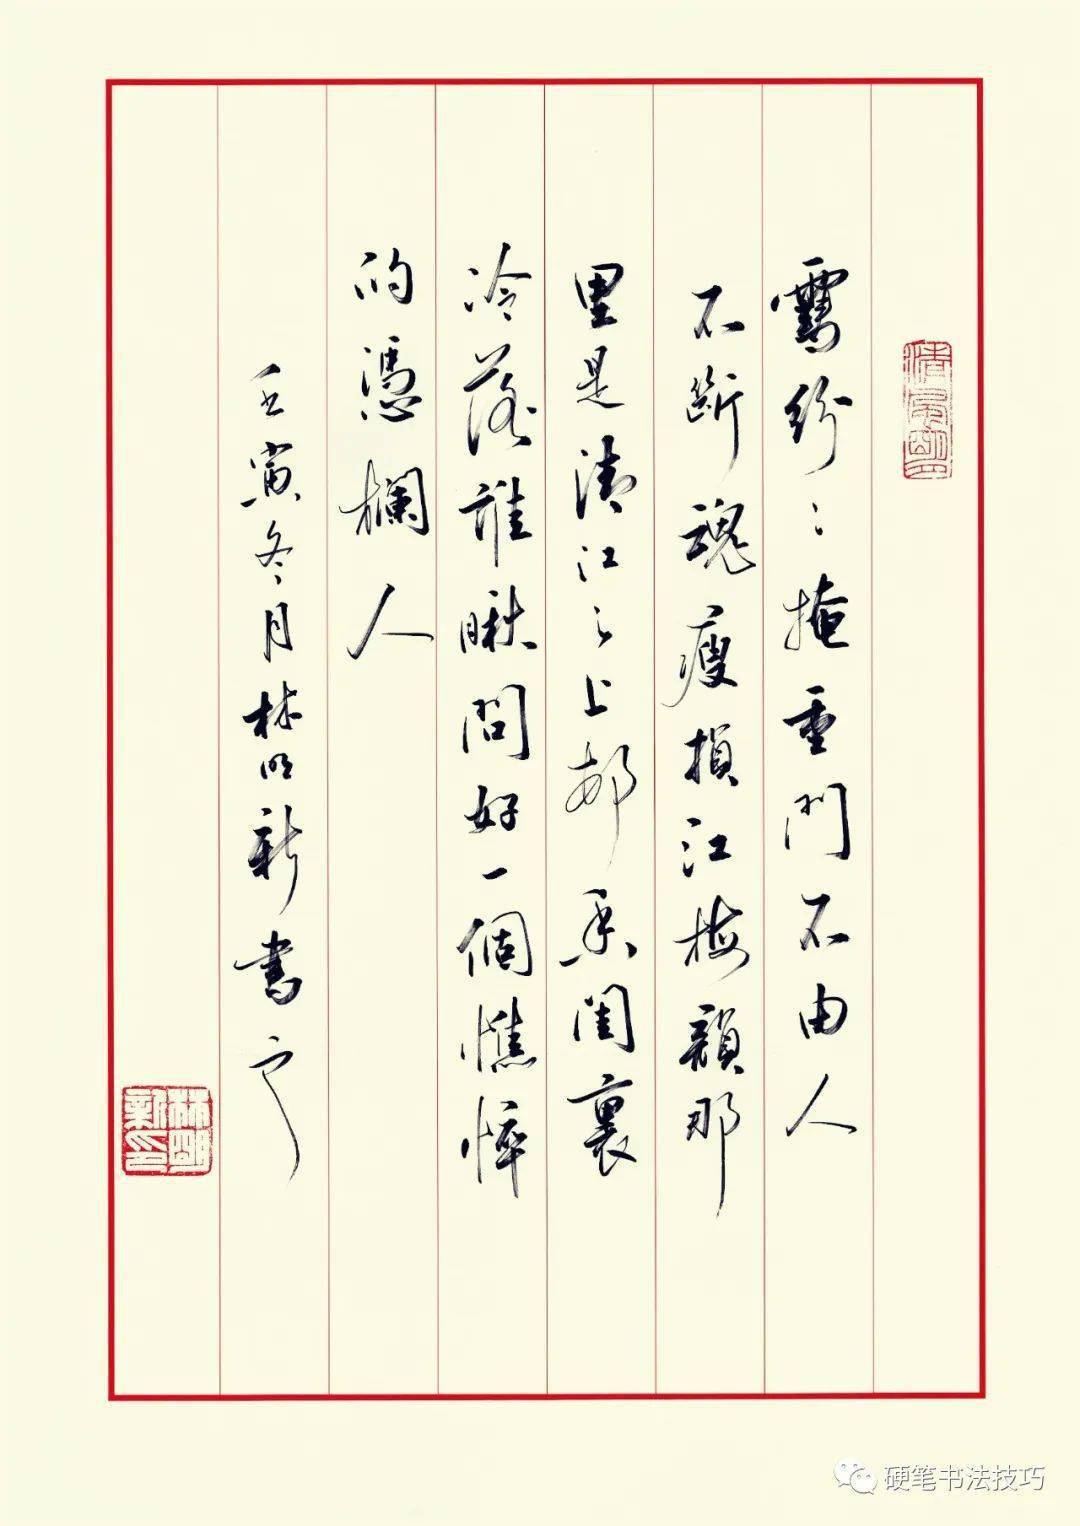 清風明月
雪紛々掩重門不由人
不斷魂瘦損江梅韻那
里是清江々上邨香閨裏
冷落誰瞅問好一個憔悴
的憑欄人
壬寅冬月林明新書
林明新印
硬笔书法技巧